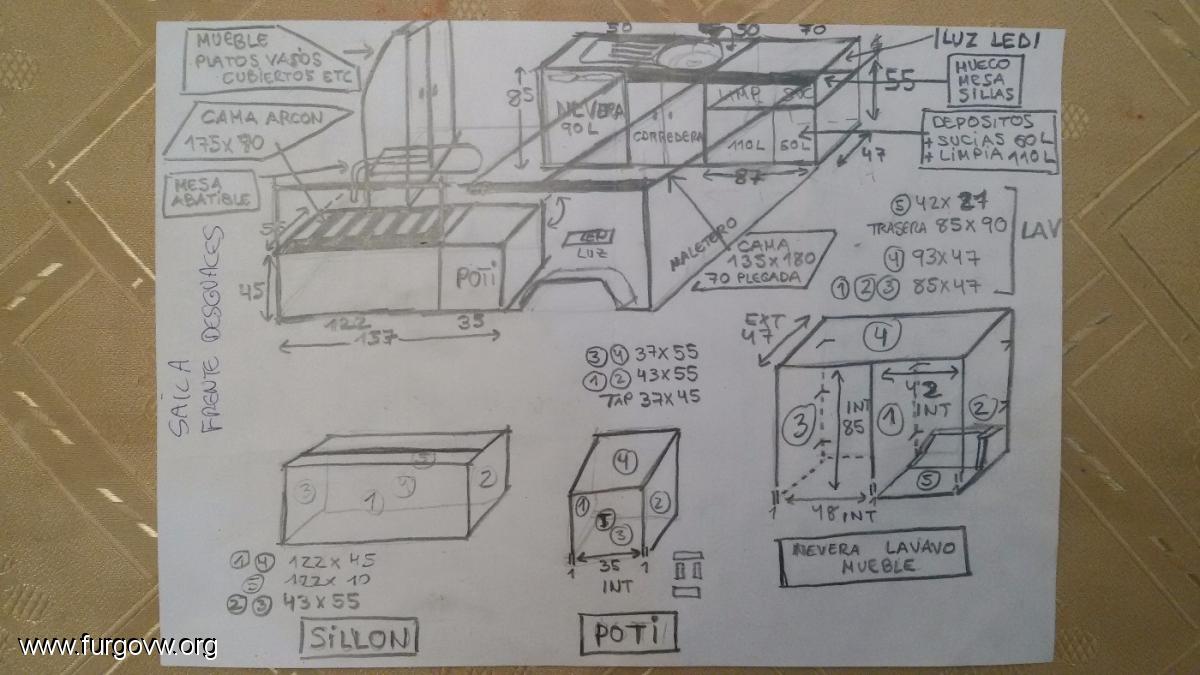 MUEBLE
PLATOS VASOS
CUBIERTOS ETC
CAMA ARCON
175 X 80
MESA
ABATIBLE
50
50
70
85
NEVERA
90L
CORREDERA
LIMP
SUC
110L
60L
87
47
55
¡LUZ LED!
HUECO
MESA
SILLAS
DEPOSITOS
+ SUCIAS 60L
+ LIMPIA 110L
45
POTI
122
35
157
LED
LUZ
MALETERO
CAMA
135 X 180
70 PLEGADA
⑤ 42 X 27
TRASERA 85 X 90
④ 93 X 47
① ② ③ 85 X 47
LAV
SAILA
FRENTE DESGUACES
③ ④ 37 X 55
① ② 43 X 55
TAP 37 X 45
EXT
47
④
③
INT
85
①
42
INT
②
⑤
1
48 INT
1
1
NEVERA LAVAVO
MUEBLE
⑤
③
①
④
2
① ④ 122 X 45
⑤ 122 X 10
② ③ 43 X 55
SILLON
④
①
②
5
③
1
35
1
INT
POTI
www.furgovw.org